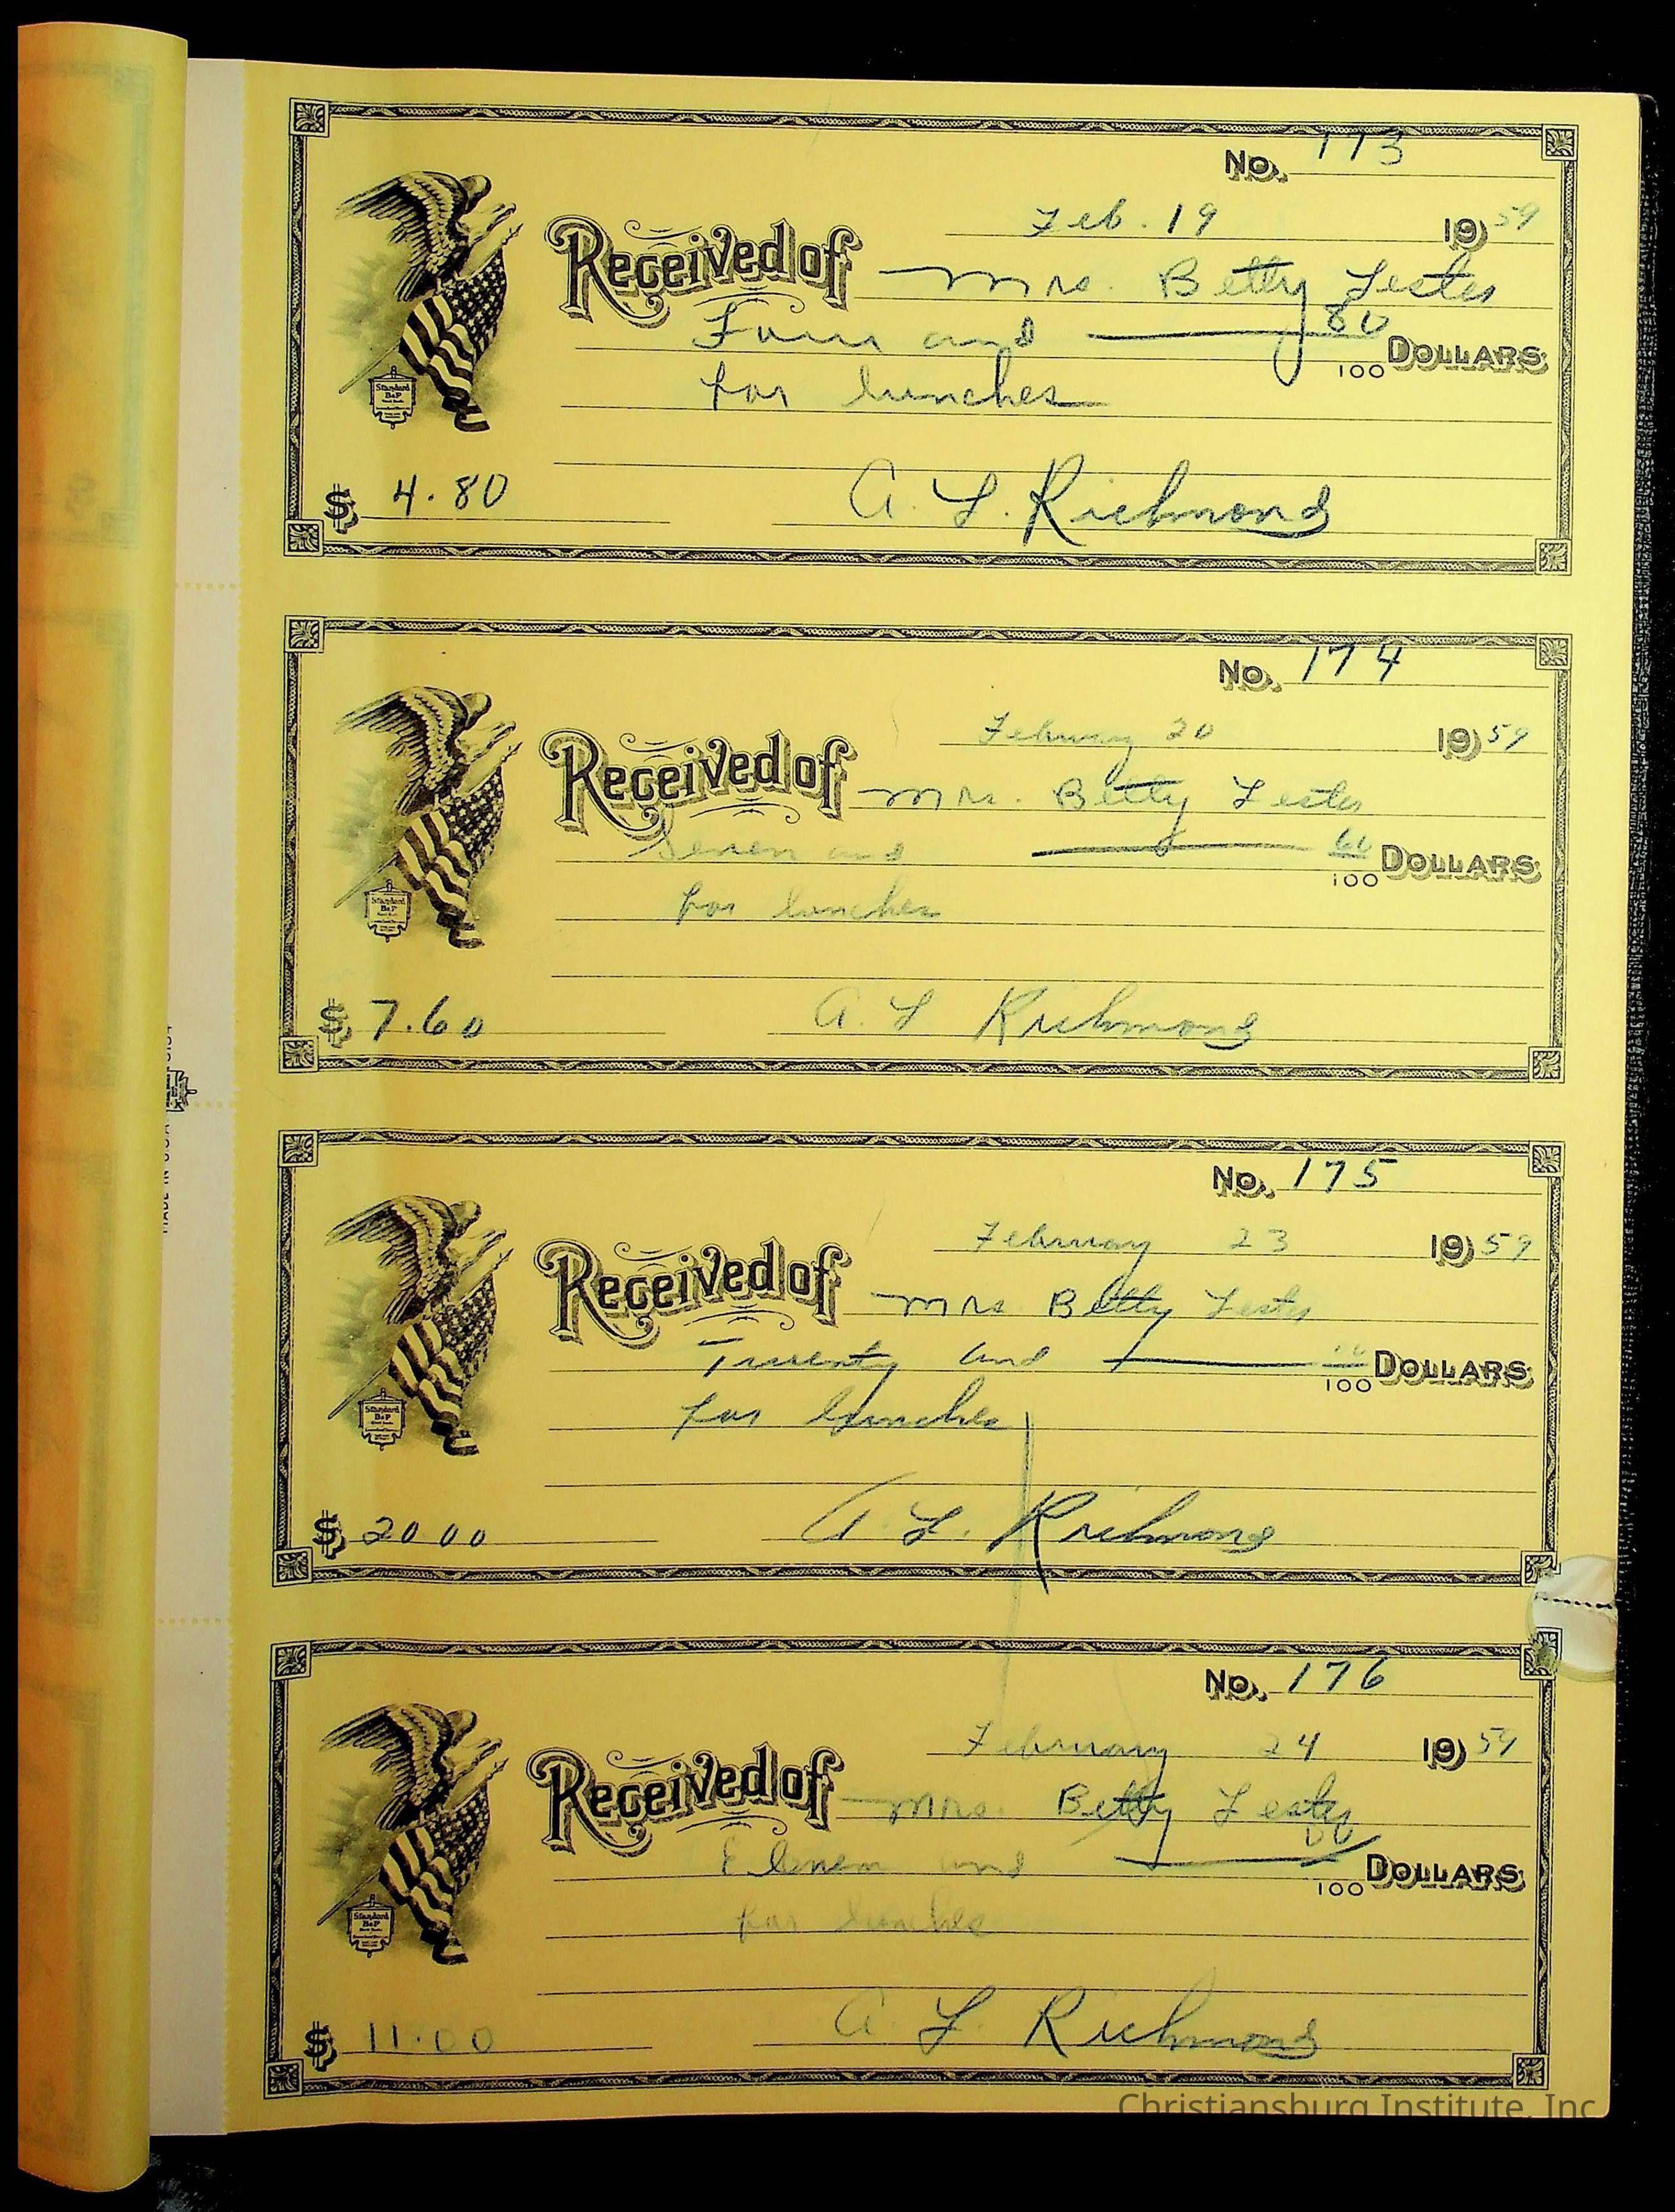 No. 173
Feb. 19 1959
Received of Mrs. Betty Lester
Four and 80/100 DOLLARS
for lunches
$ 4.80 A. L. Richmond
Standard B&P
No. 174
February 20 1959
Received of Mrs. Betty Lester
Seven and 60/100 DOLLARS
for lunches
$ 7.60 A. L Richmond
Standard B&P
MADE IN U.S.A.
No. 175
February 23 1959
Received of Mrs Betty Lester
Twenty and 00/100 DOLLARS
for lunches
$ 20 00 A. L. Richmond
Standard B&P
No. 176
February 24 1959
Received of Mrs. Betty Lester
Eleven and 00/100 DOLLARS
for lunches
$ 11.00 A. L. Richmond
Standard B&P
Christiansburg Institute, Inc